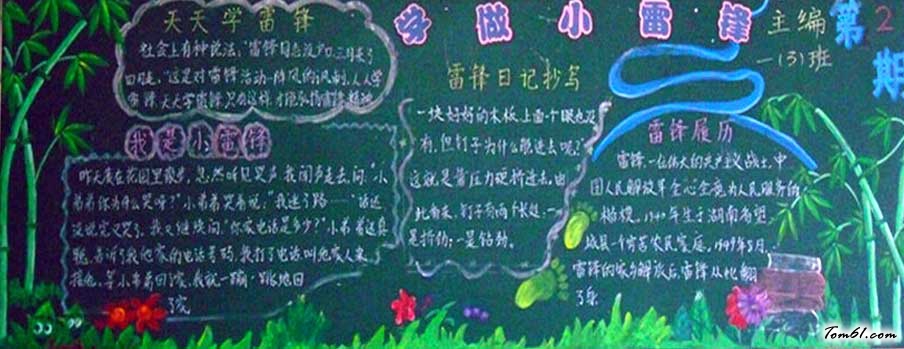 天天学雷锋
社会上有种说法,"雷锋同志没户口三月来了
四月走,"这是对雷锋活动一阵风的讽刺,人人学
雷锋,天天学雷锋,只有这样才能弘扬雷锋精神
学做小雷锋
主编
一(3)班
第2期
我是小雷锋
昨天我在花园里散步,忽然听见哭声,我闻声走去,问:"小
弟弟你为什么哭呀?"小弟弟哭着说:"我迷了路……"话还
没说完又哭了,我又继续问,"你家电话是多少?"小弟弟这真
聪,告诉了我他家的电话号码,我打了电话叫他家人来
接他,等小弟弟回了家,我就一蹦一跳地回
了家
雷锋日记抄写
一块好好的木板,上面一个眼也没
有,但钉子为什么能进去呢?
这就是靠压力硬挤进去,由
此看来,钉子有两个长处:一
是挤劲;一是钻劲。
雷锋履历
雷锋,一位伟大的共产主义战士,中
国人民解放军全心全意为人民服务的
楷模,1940年生于湖南省望
城县一个贫苦农民家庭,1949年8月,
雷锋的家乡解放后,雷锋从此翻
了身
Tom61.com